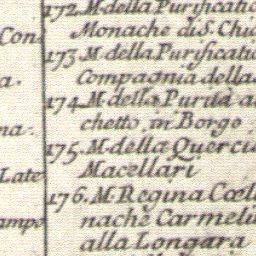 172. M. della Purificatio
Monache di S. Chi
Con
173. M. della Purificatio
a.
Compagnia della
174. M. della Purità a
chetto in Borgo
na.
175. M. della Querci
Late
Macellari
176. M. Regina Cœl
ampo
nache Carmeli
alla Longara